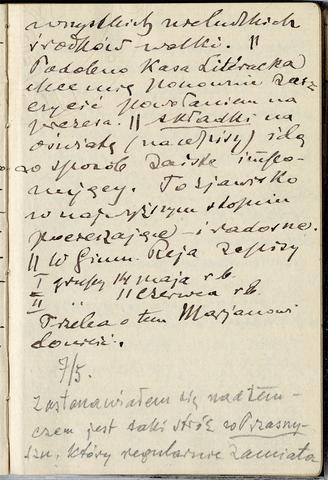 wszystkich nieludzkich
środków walki. ||
Podobno Kasa Literacka
chce mię ponownie zasz-
czycić powołaniem na
prezesa. || składki na
oświatę (na wpisy) idą
w sposób zaiste impo-
nujący. To zjawisko
w najwyższym stopniu
pocieszające – i radosne.
|| W Gimn. Reja zapisy
I grupy 14 maja r.b.
II " 11 czerwca r.b.
Trzeba o tem Marjanowi
donieść.
7/5.
Zastanawiałem się nad tem –
czem jest taki stróż w Przasny-
szu, który regularnie zamiata